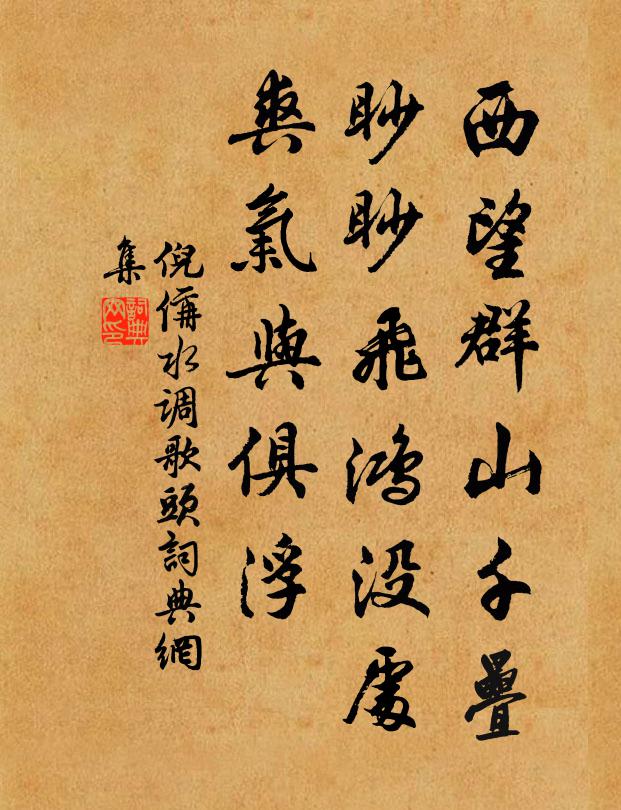 西望群山千疊
眇眇飛鴻没處
爽氣與俱浮
倪偁水调歌頭詞典網
集
詞典網印